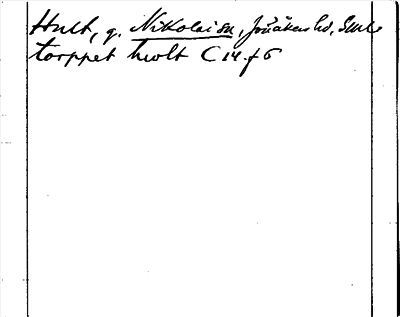 Hult, g. Nikolai sn, Jönåkers hd, Smls
torppet hwlt C 14 f 6